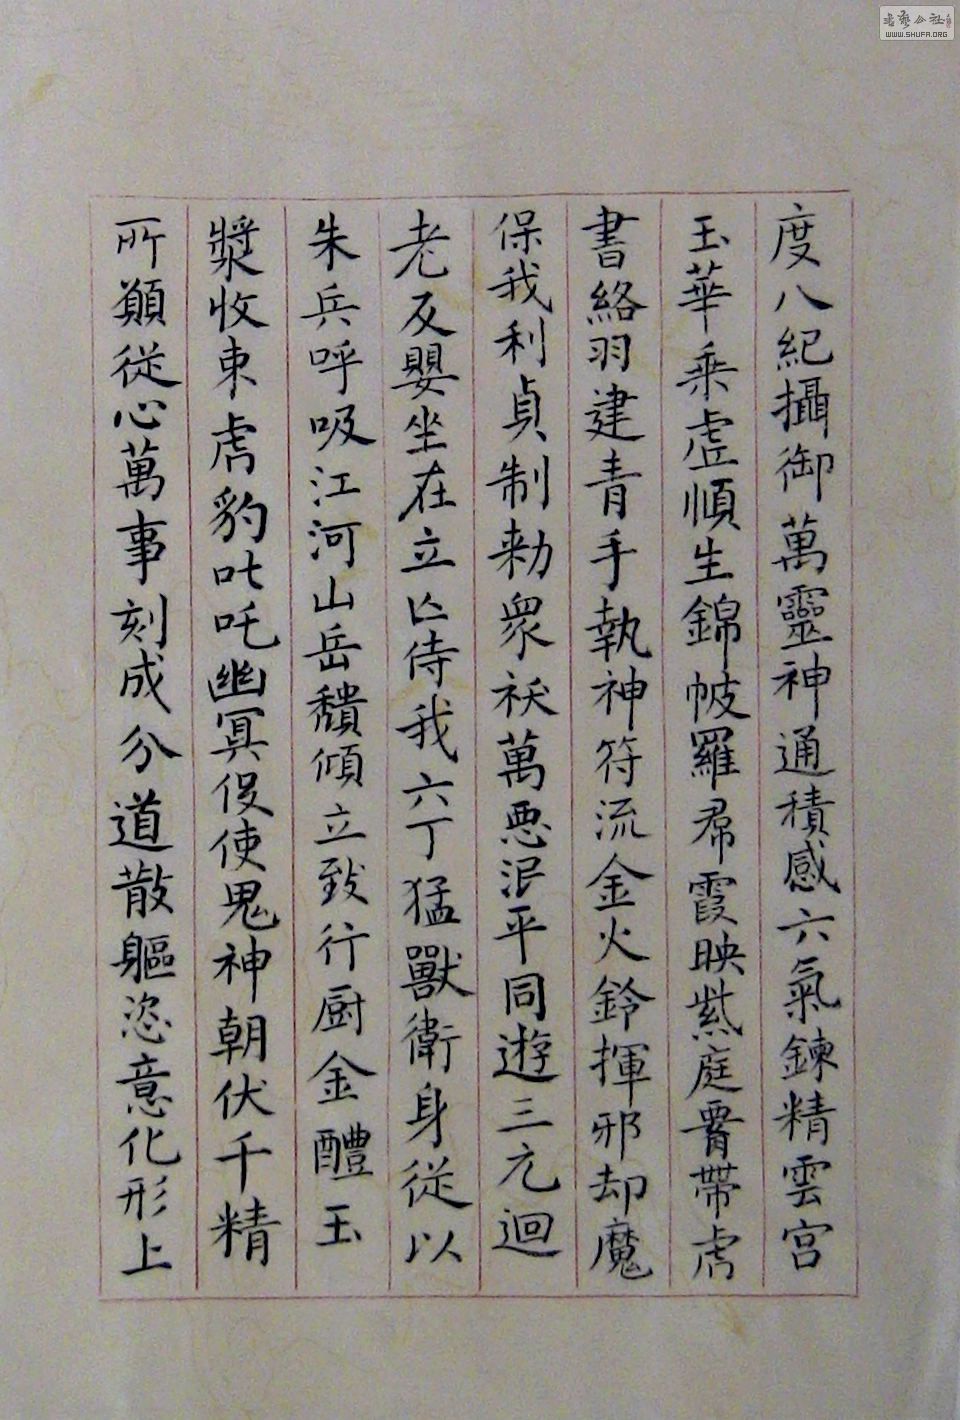 度八紀攝御萬靈神通積感六氣鍊精雲宮
玉華乘虛順生錦帔羅帬霞映紫庭腰帶虎
書絡羽建青手執神符流金火鈴揮邪却魔
保我利貞制勑衆祅萬惡泯平同遊三元迴
老反嬰坐在立亡侍我六丁猛獸衛身從以
朱兵呼吸江河山岳穨傾立致行厨金醴玉
漿收束虎豹叱吒幽冥役使鬼神朝伏千精
所願從心萬事刻成分道散軀恣意化形上
書藝公社
WWW.SHUFA.ORG